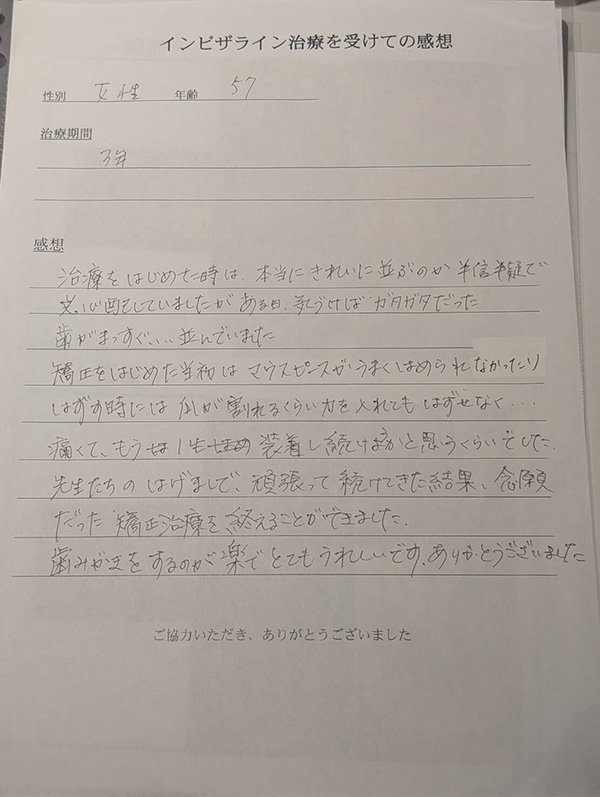 インビザライン治療を受けての感想
性別 女性 年齢 57
治療期間
3年
感想
治療をはじめた時は、本当にきれいに並ぶのか半信半疑で
心配をしていましたがある日、気づけばガタガタだった
歯がまっすぐ...並んでいました
矯正をはじめた当初はマウスピースがうまくはめられなかったり
はずす時には爪が割れるくらい力を入れてもはずせなく...
痛くて、もう 装着し続けるかと思うくらいでした。
先生たちのはげましで、頑張って続けてきた結果、念願
だった矯正治療を終えることができました。
歯みがきをするのが楽でとてもうれしいです。ありがとうございました
ご協力いただき、ありがとうございました